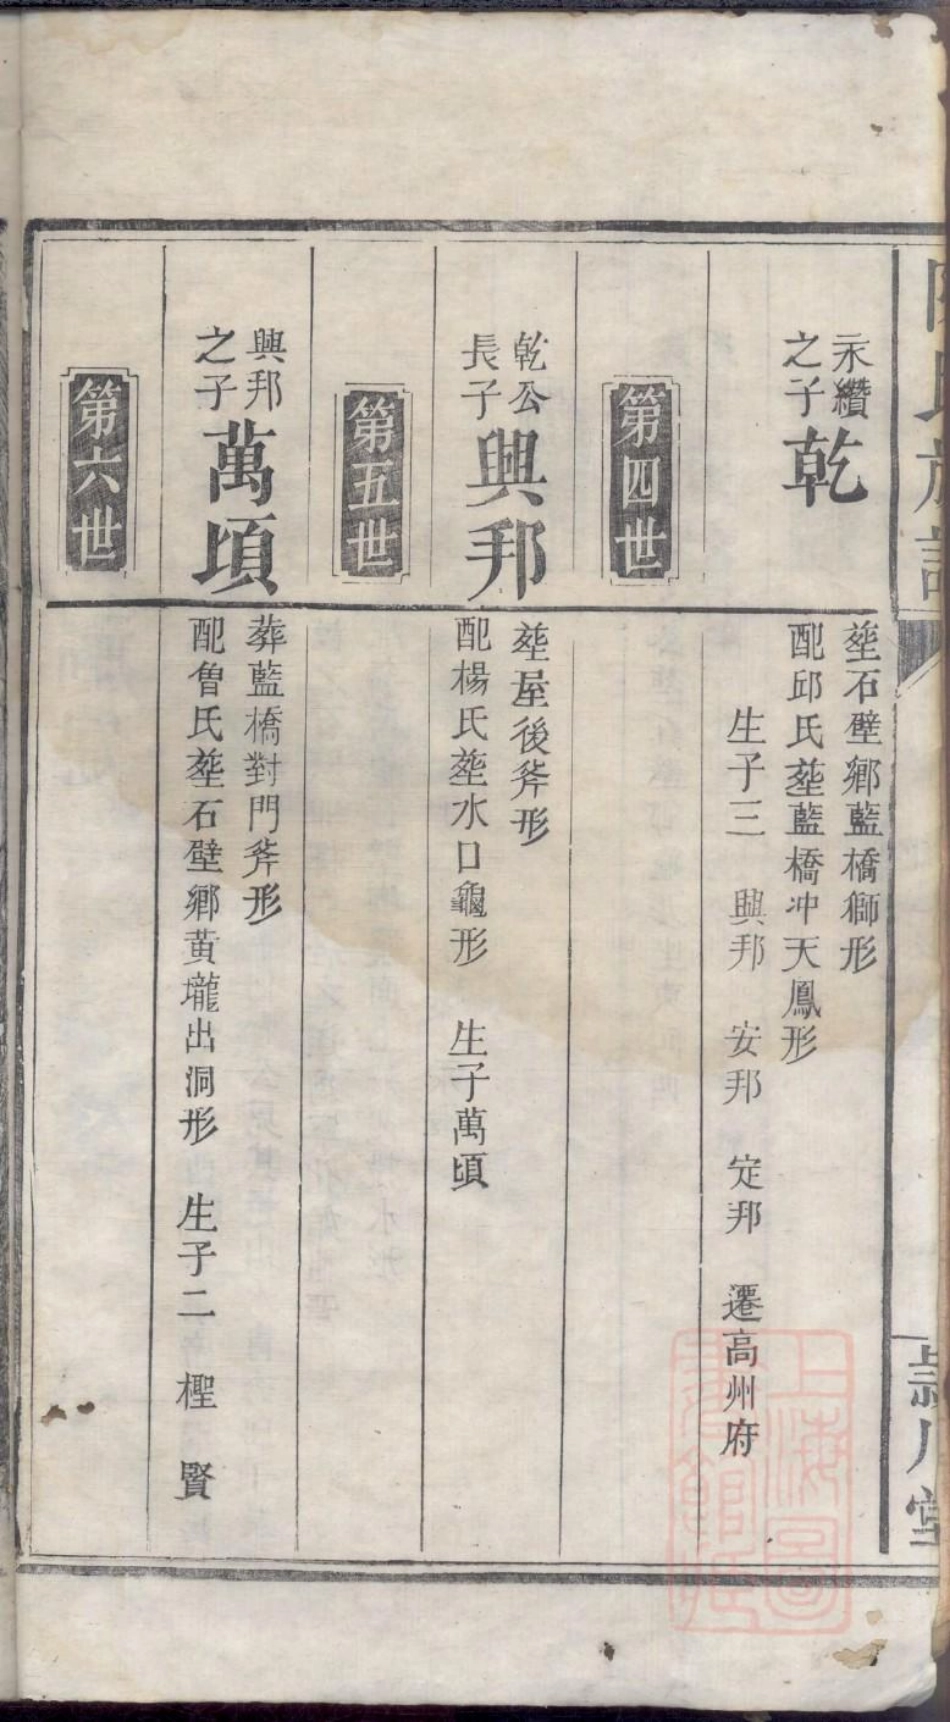 氏族譜
永纘
之子
乾
塟石壁鄉藍橋獅形
配邱氏塟藍橋冲天鳳形
生子三 興邦 安邦 定邦 遷高州府
第四世
乾公
長子
興邦
塟屋後斧形
配楊氏塟水口龜形 生子萬頃
第五世
興邦
之子
萬頃
葬藍橋對門斧形
配魯氏塟石壁鄉黃壠出洞形 生子二 樫 賢
第六世
川堂
上海圖
書館藏